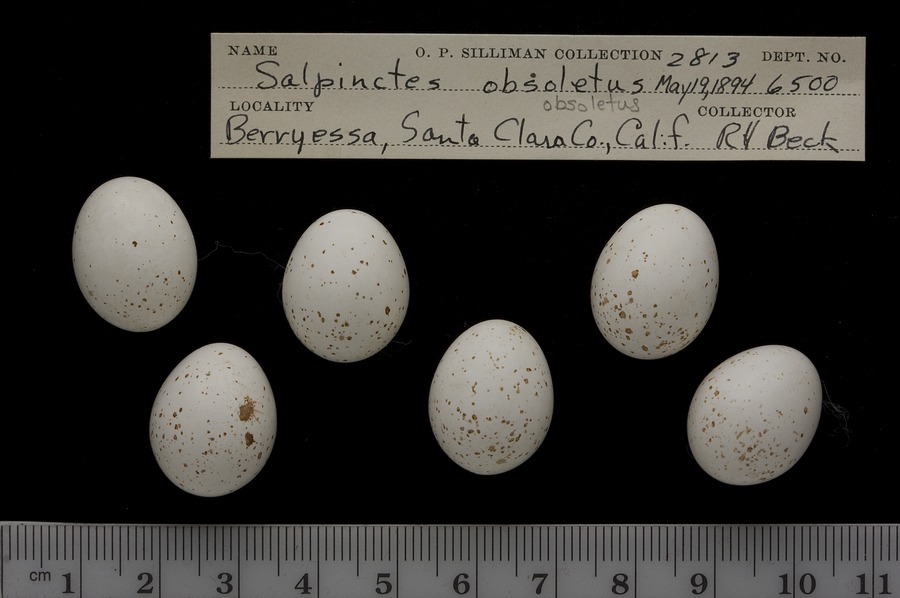 NAME O. P. SILLIMAN COLLECTION 2813 DEPT. NO.
Salpinctes obsoletus May 19, 1894 6500
obsoletus
LOCALITY COLLECTOR
Berryessa, Santa Clara Co., Calif. RH Beck
cm 1 2 3 4 5 6 7 8 9 10 11